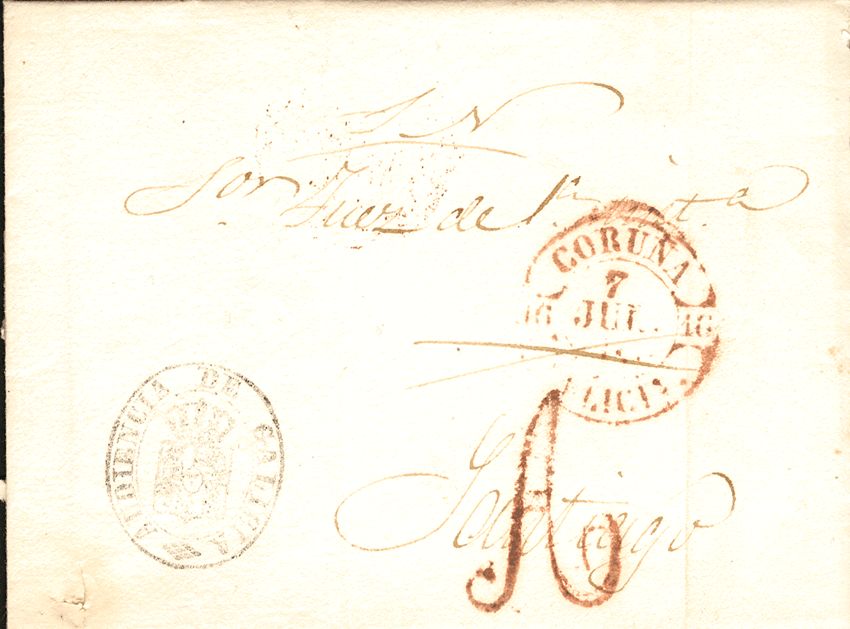 S N
Sor Juez de 1ª inst.a
CORUÑA
7
JUL.
16 16
GALICIA.
AUDIENCIA DE GALICIA
Santiago
A